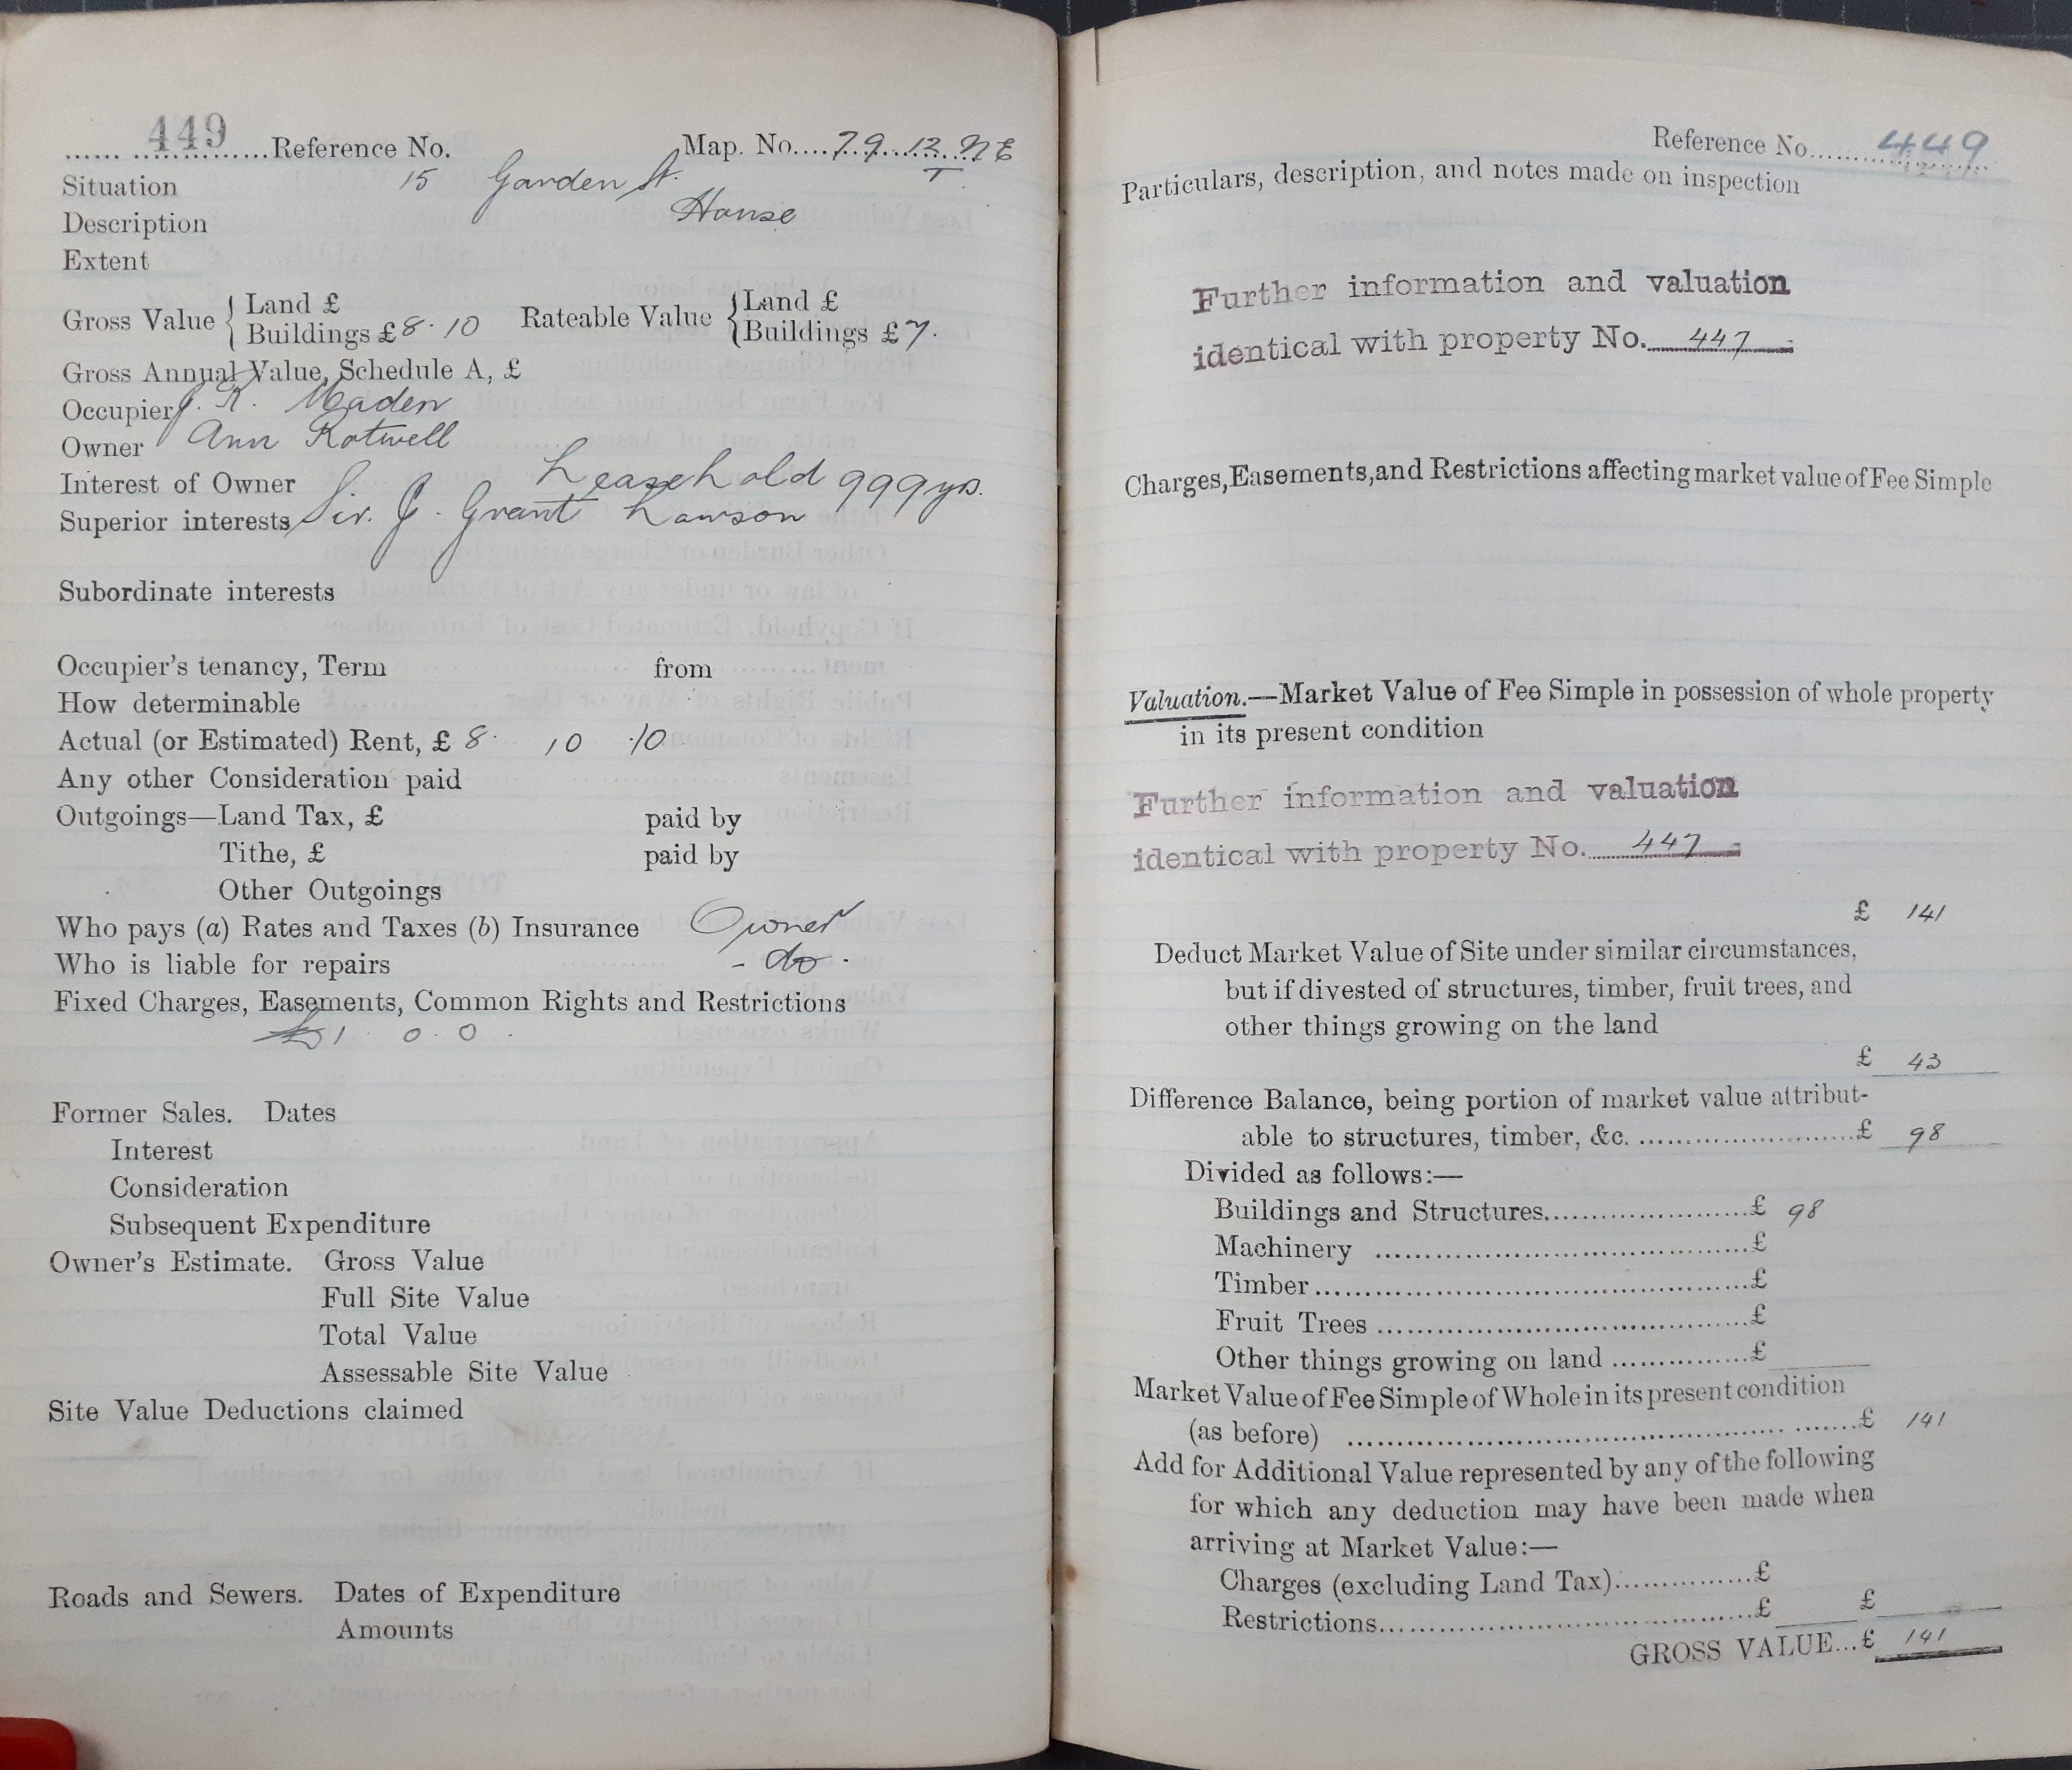 449 Reference No. Map. No. 79. 12. NE
T
Situation 15 Garden St.
Description House
Extent
Gross Value { Land £
Buildings £ 8. 10 Rateable Value { Land £
Buildings £ 7.
Gross Annual Value, Schedule A, £
Occupier J. R. Maden
Owner Ann Rotwell
Interest of Owner Leasehold 999 yrs.
Superior interests Sir. J. Grant Lawson
Subordinate interests
Occupier's tenancy, Term from
How determinable
Actual (or Estimated) Rent, £ 8. 10 .10
Any other Consideration paid
Outgoings—Land Tax, £ paid by
Tithe, £ paid by
Other Outgoings
Who pays (a) Rates and Taxes (b) Insurance Owner
Who is liable for repairs - do -
Fixed Charges, Easements, Common Rights and Restrictions
£1. 0. 0.
Former Sales. Dates
Interest
Consideration
Subsequent Expenditure
Owner's Estimate. Gross Value
Full Site Value
Total Value
Assessable Site Value
Site Value Deductions claimed
Roads and Sewers. Dates of Expenditure
Amounts
Reference No. 449
Particulars, description, and notes made on inspection
Further information and valuation
identical with property No. 447
Charges, Easements, and Restrictions affecting market value of Fee Simple
Valuation.—Market Value of Fee Simple in possession of whole property
in its present condition
Further information and valuation
identical with property No. 447
£ 141
Deduct Market Value of Site under similar circumstances,
but if divested of structures, timber, fruit trees, and
other things growing on the land
£ 43
Difference Balance, being portion of market value attribut-
able to structures, timber, &c. £ 98
Divided as follows:—
Buildings and Structures £ 98
Machinery £
Timber £
Fruit Trees £
Other things growing on land £
Market Value of Fee Simple of Whole in its present condition
(as before) £ 141
Add for Additional Value represented by any of the following
for which any deduction may have been made when
arriving at Market Value:—
Charges (excluding Land Tax) £
Restrictions £ £
GROSS VALUE...£ 141